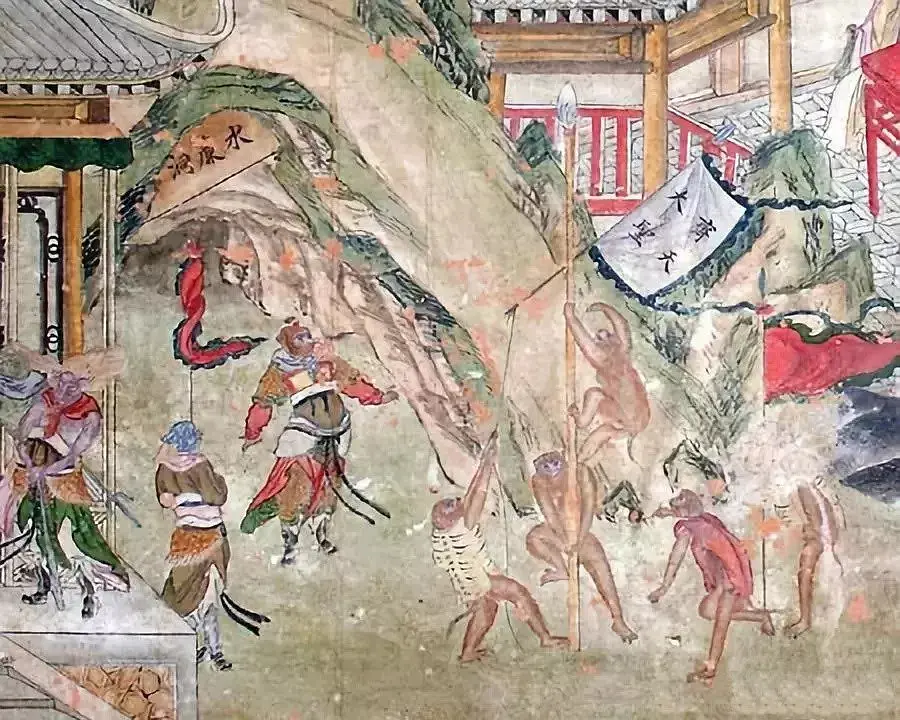 水廉洞
齊天
大聖